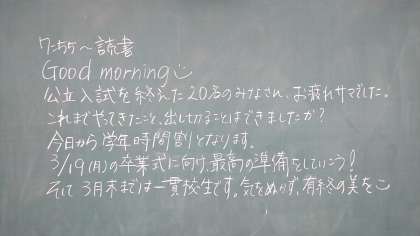 7:55〜読書
Good morning
公立入試を終えた20名のみなさん、お疲れサマでした。
これまでやってきたこと、出しきることはできましたか？
今日から学年時間割となります。
3/19(月)の卒業式に向け、最高の準備をしていこう！
そして3月末までは一貫校生です。気をぬかず、有終の美を